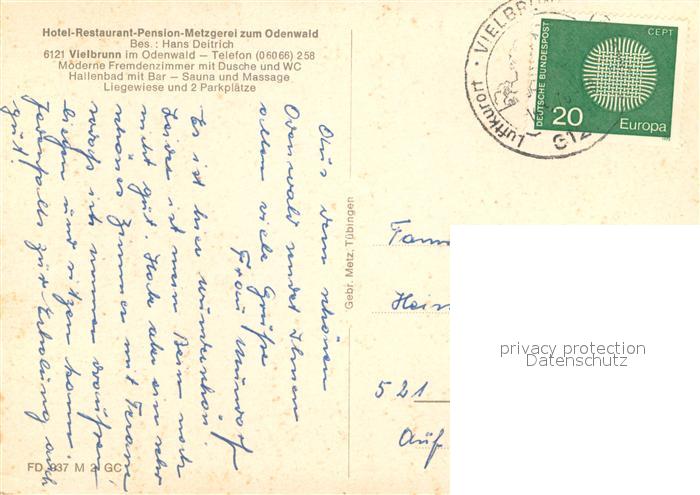 Hotel-Restaurant-Pension-Metzgerei zum Odenwald
Bes.: Hans Deitrich
6121 Vielbrunn im Odenwald — Telefon (06066) 258
Moderne Fremdenzimmer mit Dusche und WC
Hallenbad mit Bar — Sauna und Massage
Liegewiese und 2 Parkplätze
Aus dem schönen
Odenwald sendet Ihnen
allen viele Grüße
Frau
Es ist hier wunderschön.
Leider ist mein Bein noch
nicht gut. Habe aber ein sehr
schönes Zimmer mit Terasse,
ich immer draußen
liegen und sitzen kann.
Jedenfalls zur Erholung auch
gut!
FD 937 M 2 GC
Gebr. Metz, Tübingen
Luftkurort · VIELBRUNN
612
DEUTSCHE BUNDESPOST
CEPT
20
Europa
Fam
Hein
521
Auf
privacy protection
Datenschutz